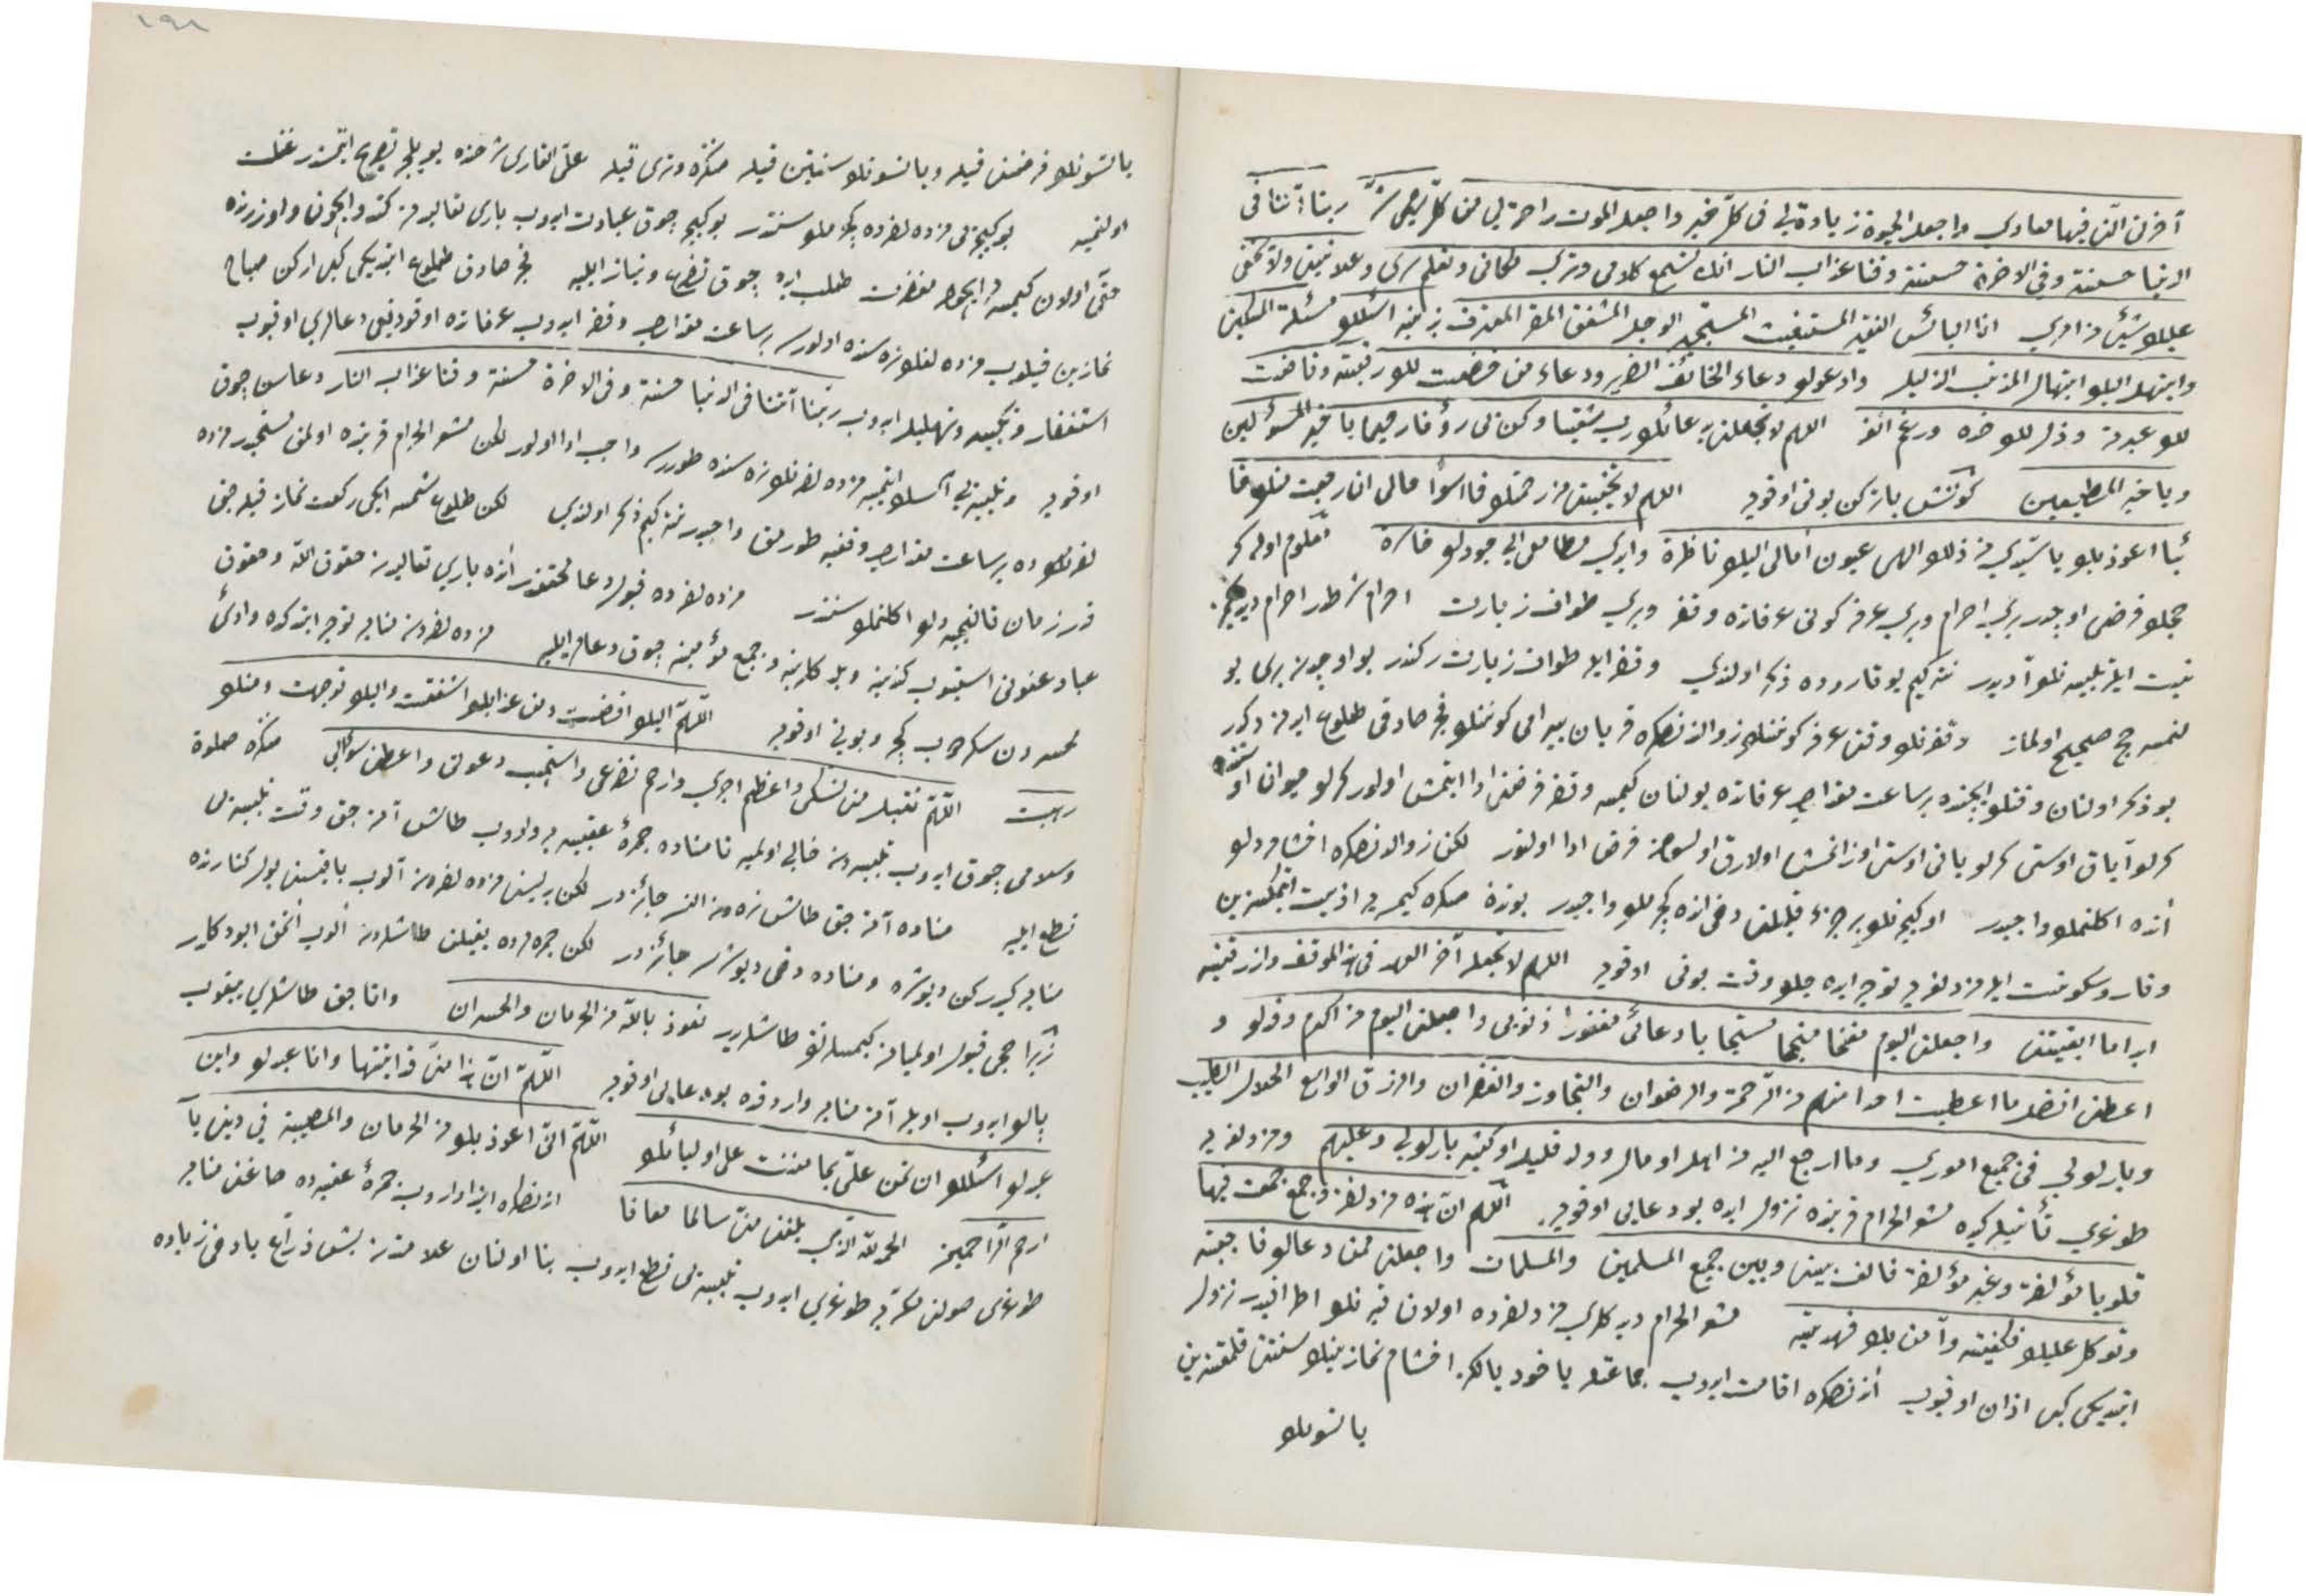 آخرتي التي فيها معادي واجعل الحيوة زيادة لي في كل خير واجعل الموت راحة لي من كل شر ربنا آتنا في
الدنيا حسنة وفي الاخرة حسنة وقنا عذاب النار انك تسمع كلامي وترى مكاني وتعلم سري وعلانيتي ولا يخفى
عليك شيئ من امري انا البائس الفقير المستغيث المستجير الوجل المشفق المقر المعترف بذنبه اسئلك مسئلة المسكين
وابتهل اليك ابتهال المذنب الذليل وادعوك دعاء الخائف الضرير دعاء من خضعت لك رقبته وفاضت
لك عبرته وذل لك خده ورغم انفه اللهم لا تجعلني بدعائك رب شقيا وكن لي رؤفا رحيما يا خير المسؤلين
ويا خير المعطين كونش باتركن بوني اوقويه اللهم لا تخيبني من رحمتك
اعوذ بك يا سيدي من ذلك الهى عيون امالى اليك ناظرة وايدي مطامعي الي جودك معلوم اوله كه
حجك فرضى اوچدر بري احرام وبري عرفه كوني عرفاتده وقفه وبري طواف زيارت احرام شرطدر احرام ديديكمز
نيت ايله تلبيه نك آديدر نته كيم يوقاروده ذكر اولندي وقفه ايله طواف زيارت ركندر بو اوچدن بري بو
لنمسه حج صحيح اولماز وقفه نك وقتى عرفه كوننك زوالندنصكره قربان بيرامى كوننك فجر صادقى طلوع ايدنه دكدر
بو ذكر اولنان وقتك ايچنده بر ساعت مقدارى عرفاتده بولنان كيمسه وقفه فرضنى ادا ايتمش اولور كرك حيوان اوستنده
كرك آياق اوستى كرك ياني اوستى اوزانمش اولارق اولسون فرض ادا اولنور لكن زوالدنصكره اخشامه دك
انده اكلنمك واجبدر او كيجه نك بر جزء قليلنى دخى انده كچرمك واجبدر بوندن صكره كيمسه يه اذيت ايتمكسزين
وقار وسكونت ايله مزدلفه يه توجه ايده چك وقت بوني اوقويه اللهم لا تجعله آخر العهد من هذا الموقف وارزقنيه
ابدا ما ابقيتني واجعلني اليوم مفلحا منجحا مستجابا دعائي مغفورا ذنوبي واجعلني اليوم من اكرم وفدك و
اعطنى افضل ما اعطيت احدا منهم من الرحمة والرضوان والتجاوز والغفران والرزق الواسع الحلال الطيب
وبارك لي في جميع اموري وما ارجع اليه من اهل او مال وولد قليل او كثير بارك لي وعليهم ومزدلفه يه
طوغري تأنيله كيده مشعر الحرام قربنده نزول ايده بو دعايى اوقويه اللهم ان هذه مزدلفة وجمع جمعت فيها
قلوبا مؤلفة وغير مؤلفة فالف بيني وبين جميع المسلمين والمسلمات واجعلني ممن دعاك فاجبته
وتوكل عليك فكفيته وآمن بك فهديته مشعر الحرام ديدكلري مزدلفه ده اولان تپه نك اطرافيدر نزول
ايتديكى كبى اذان اوقيوب اندنصكره اقامت ايدوب جماعتله ياخود يالكز اخشام نمازينك سنتنى قلمقسزين
ياتسونك
ياتسونك فرضنى قيله وياتسونك سنتين قيله صكره وترى قيله على القارى شرحنده بويله جه تصريح ايتمشدر غفلت
اولنميه بو كيجه يى مزدلفه ده كچرمك سنتدر بو كيجه چوق عبادت ايدوب باري تعاليدن كندو ايچون واوزرنده
حقى اولان كيمسه لر ايچون مغفرت طلب ايده چوق تضرع ونياز ايليه فجر صادق طلوع ايتديكى كبى اركن صباح
نمازين قيلوب مزدلفه نك سنده اولورسه بر ساعت مقدارى وقفه ايدوب عرفاتده اوقوديغى دعالري اوقيوب
استغفار وتكبير وتهليل ايدوب ربنا آتنا في الدنيا حسنة وفي الاخرة حسنة وقنا عذاب النار دعاسن چوق
اوقويه وتلبيه يي اكسك ايتميه مزدلفه نك نه سنده طورسه واجب ادا اولور لكن مشعر الحرام قربنده اولمق مستحبدر مزده
لفه ده بر ساعت مقدارى وقفيه طورمق واجبدر نته كيم ذكر اولندي لكن طلوع شمسه ايكى ركعت نماز قيله جق
قدر زمان قالنجيه دك اكلنمك سنتدر مزدلفه ده قبول دعا محققدر انده باري تعاليدن حقوق الله وحقوق
عباد عفوني استيوب كندينه وبدركلرينه وجميع مؤمنينه چوق دعالر ايليه مزدلفه دن منايه توجه ايتدكده وادئ
محسردن سكردوب كچه وبوني اوقويه اللهم اليك افضت ومن عذابك اشفقت واليك توجهت ومنك
رهبت اللهم تقبل منى نسكى واعظم اجري وارحم تضرعى واستجب دعوتى واعطنى سؤالي صكره صلوة
وسلامى چوق ايدوب تلبيه دن خالى اولميه تا مناده جمرۀ عقبه يه واروب طاش آتنه جق وقت تلبيه يى
قطع ايليه مناده آتنه جق طاش نره دن النسه جائزدر لكن يديسنى مزدلفه دن آلوب باقيسنى يول كنارنده
منايه كيدركن ديوشره ومناده دخى ديوشرسه جائزدر لكن جمره ده يغيلن طاشلردن الوب آتمق ايو دكلدر
زيرا حجى قبول اولميانه كيمسه لرك طاشلريدر نعوذ بالله من الحرمان والخسران وآتاجق طاشلري يايقوب
پاك ايدوب اويله آته منايه واردقده بو دعايى اوقويه اللهم ان هذا منى قد اتيتها وانا عبدك وابن
عبدك اسئلك ان تمن علي بما مننت على اوليائك اللهم انى اعوذ بك من الحرمان والمصيبة في ديني يا
ارحم الراحمين الحمد لله الذي بلغنى منى سالما معافا اندنصكره ابتدا واروب جمرۀ عقبه ده صاغنى منايه
طوغرى صولنى مكه يه طوغري ايدوب تلبيه يى قطع ايدوب بنا اولنان علامتدن بش ذراع ياد خى زياده